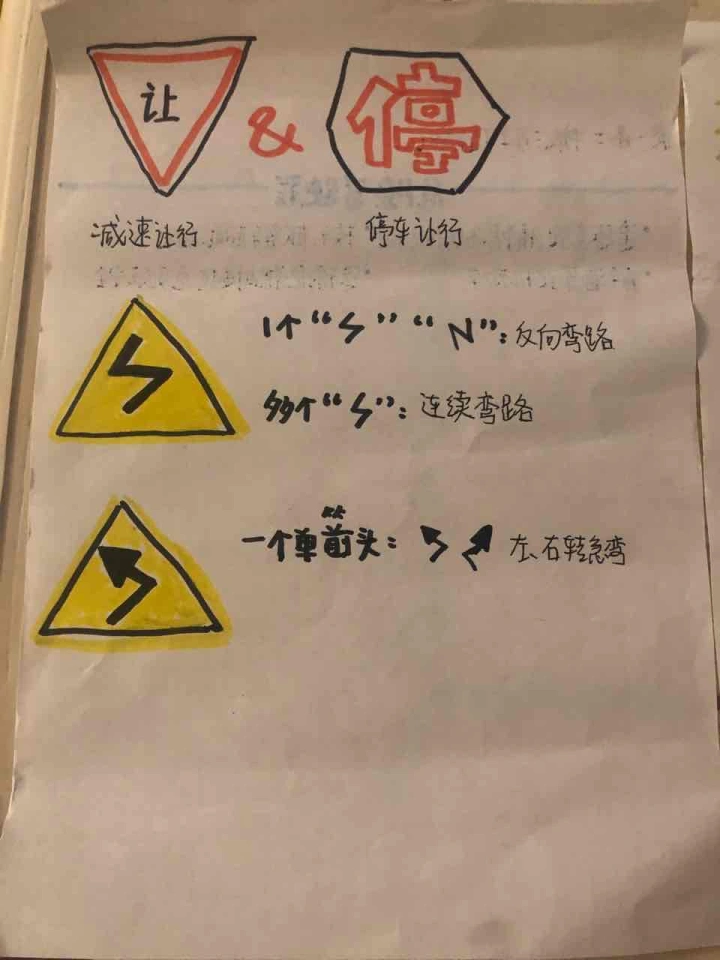 让 & 停
减速让行 停车让行
1个“ㄣ” “N”：反向弯路
多个“ㄣ”：连续弯路
一个单箭头： 左、右转急弯